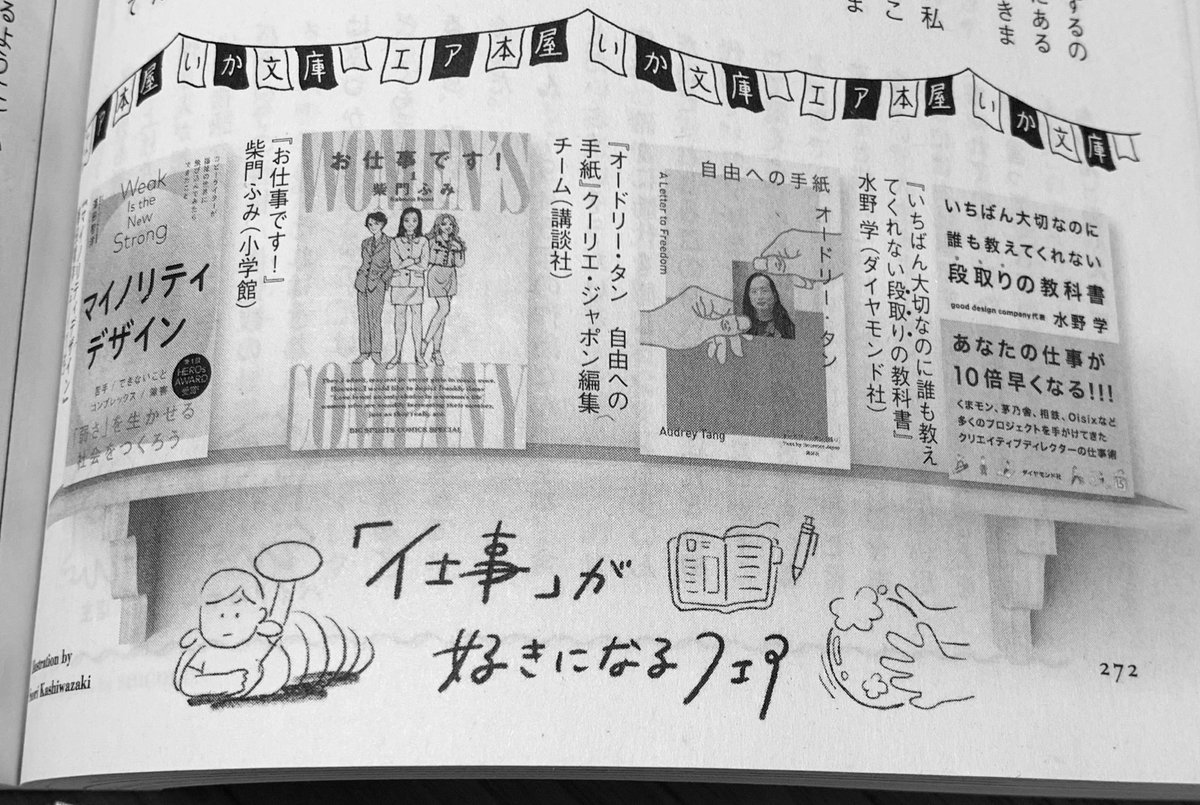 するの
にある
きま
私
こ
ま
で
本屋 いか文庫 エア本屋 いか文庫 エア本屋 いか文庫
『いちばん大切なのに誰も教え
てくれない段取りの教科書』
水野 学(ダイヤモンド社)
いちばん大切なのに
誰も教えてくれない
段取りの教科書
good design company代表 水野 学
あなたの仕事が
10倍早くなる!!!
くまモン、茅乃舎、相鉄、Oisixなど
多くのプロジェクトを手がけてきた
クリエイティブディレクターの仕事術
ダイヤモンド社
『オードリー・タン 自由への
手紙』クーリエ・ジャポン編集
チーム(講談社)
自由への手紙
オードリー・タン
A Letter to Freedom
Audrey Tang
『お仕事です!』
柴門ふみ(小学館)
WOMEN'S
お仕事です!
1
柴門ふみ
COMPANY
BIG SPIRITS COMICS SPECIAL
Weak
Is the
New
Strong
マイノリティ
デザイン
苦手/できないこと
コンプレックス/障害
「弱さ」を生かせる
社会をつくろう
HEROs
AWARD
受賞
「仕事」が
好きになるフェア
Kashiwazaki
272